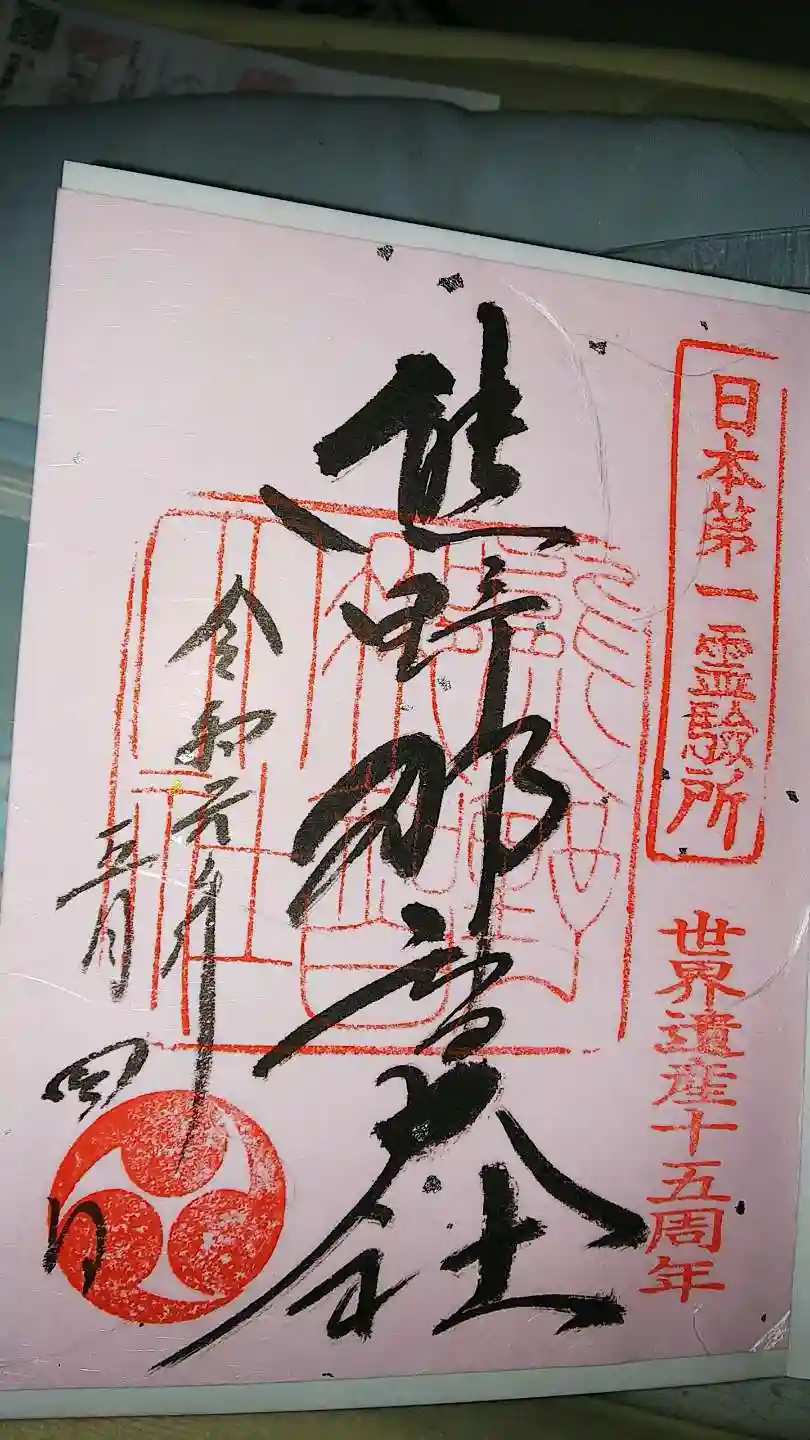 日本第一霊驗所
世界遺産十五周年
熊野那智大社
令和元年
五月
四日